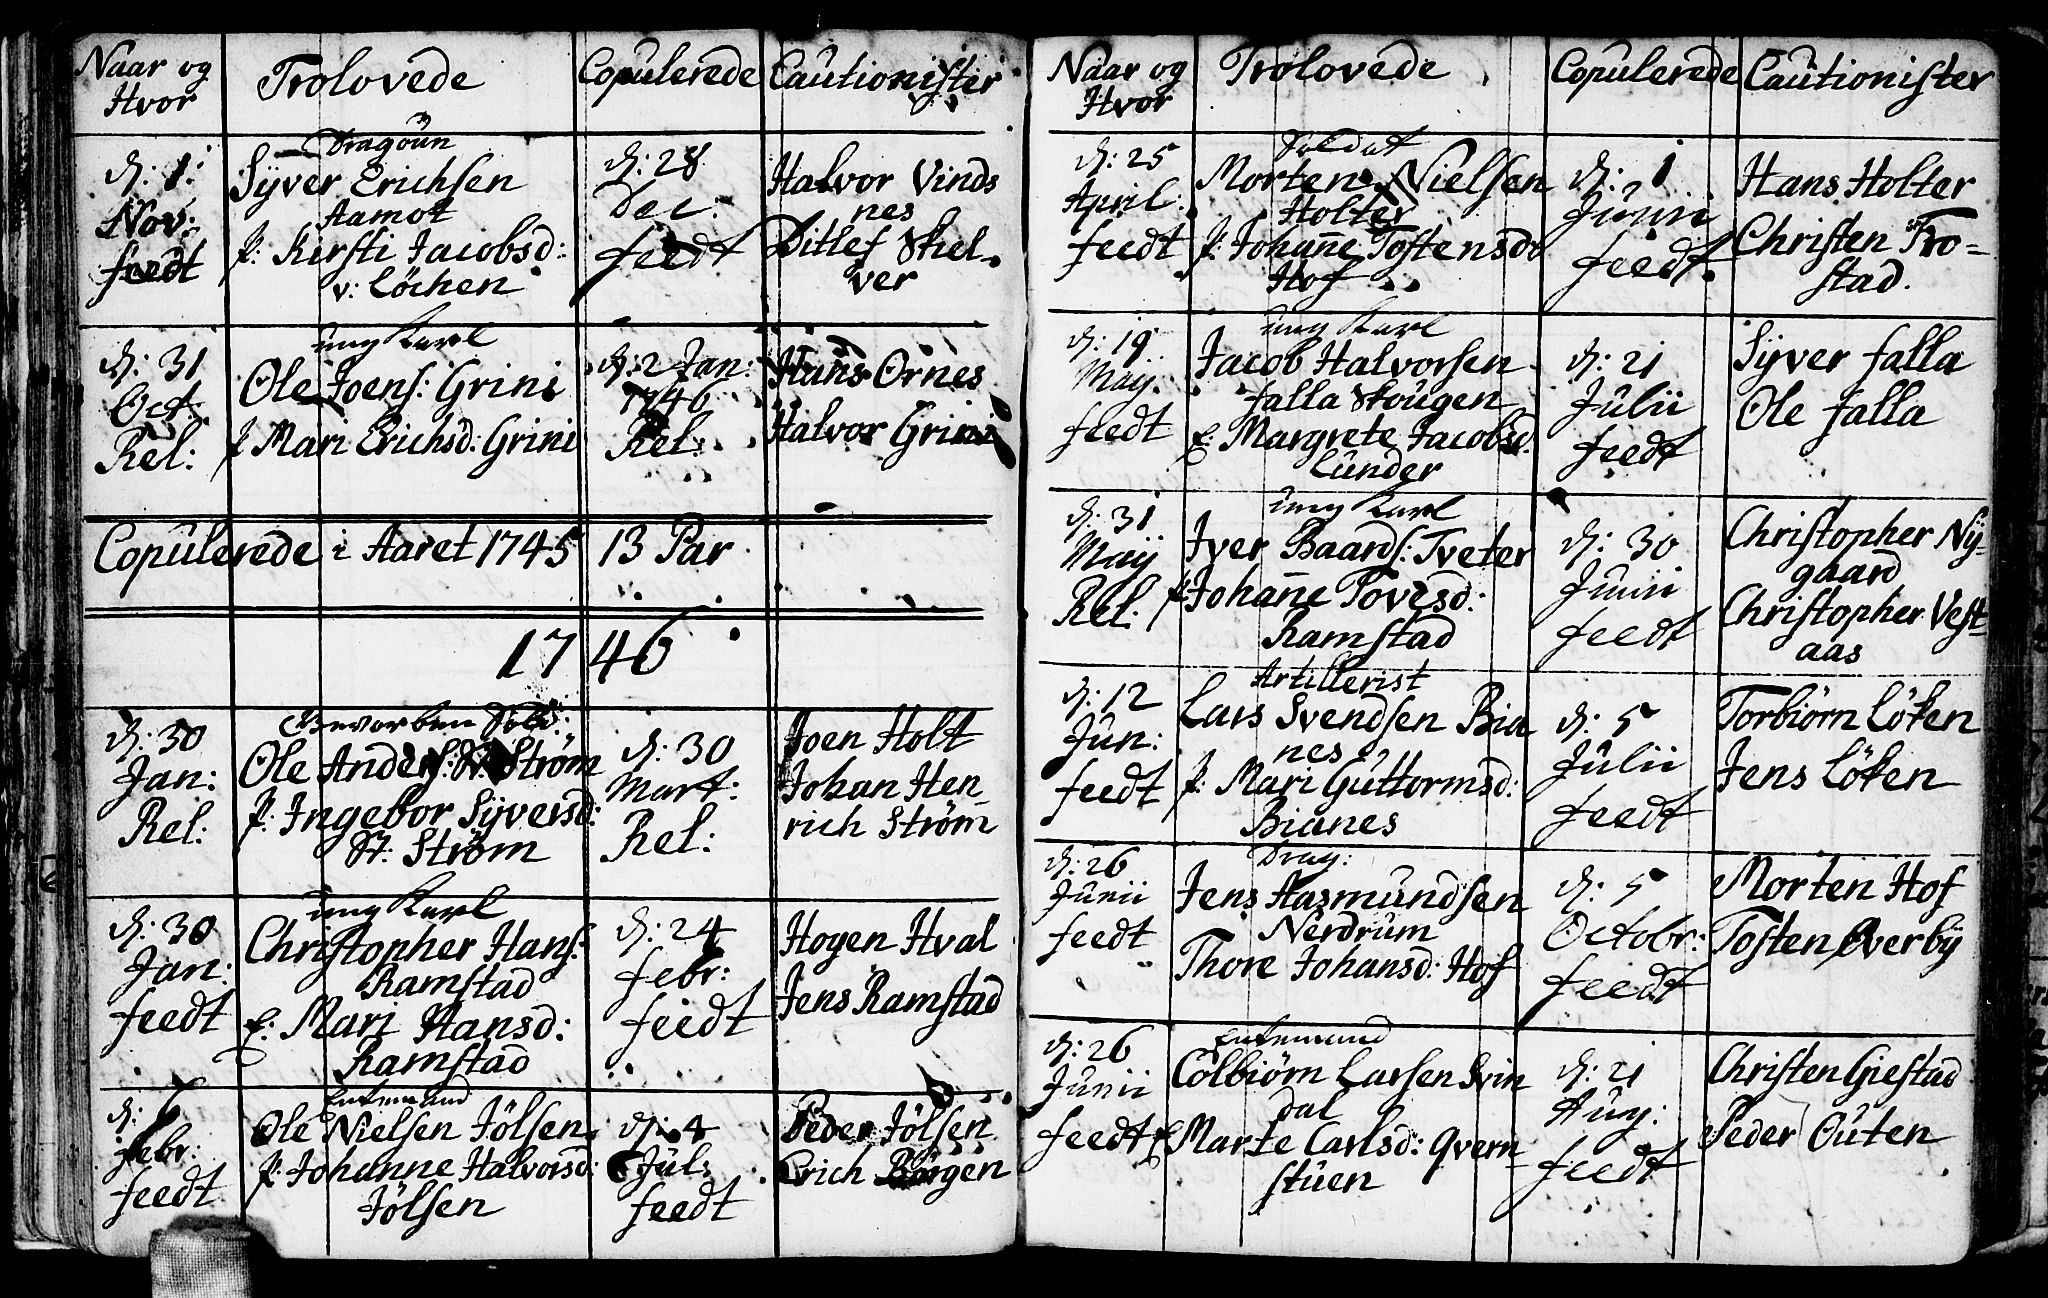 Naar og
Hvor
Trolovede
Copulerede
Cautionister
d: 1:
Nov:
feedt
Dragoun
Syver Erichsen
Aamot
P: Kirsti Jacobsd:
v: Löchen
d: 28
Dec:
feedt
Halvor Vinds
nes
Ditlef Skiel-
ver
d: 31
Oct:
Rel:
ung Karl
Ole Joens: Grini
P Mari Erichsd: Grini
d: 2 Jan:
1746
Rel:
Hans Ornes
Halvor Grini
Copulerede i Aaret 1745 13 Par
1746
d: 30
Jan:
Rel:
Bevorben Sold:
Ole Anders: St: Strøm
P: Ingebor Syversd:
St: Strøm
d: 30
Mart:
Rel:
Joen Holt
Johan Hen-
rich Strøm
d: 30
Jan:
feedt
ung Karl
Christopher Hans:
Ramstad
E: Mari Hansd:
Ramstad
d: 24
febr:
feedt
Hogen Hval
Jens Ramstad
d: 6
febr:
feedt
Enkemand
Ole Nielsen Jölsen
P: Johanne Halvorsd:
Jölsen
d: 4
Jul:
feedt
Peder Jölsen
Erich Börgen
Naar og
Hvor
Trolovede
Copulerede
Cautionister
d: 25
April.
feedt
Soldat
Morten Nielsen
Holter
P: Johan̄e Tostensd:
Hof
d: 1
Junii
feedt
Hans Holter
Christen Tro-
stad.
d: 19
May.
feedt
ung Karl
Jacob Halvorsen
falla Skougen
E: Margrete Jacobsd.
Lunder
d: 21
Julii
feedt
Syver falla
Ole falla
d: 31
Maij
Rel:
ung Karl
Iver Baards: Tveter
P Johan̄e Povesd:
Ramstad
d: 30
Junii
feedt
Christopher Ny-
gaard
Christopher Vest-
aas
d: 12
Jun:
feedt
Artillerist
Lars Svendsen Bia
nes
P: Mari Guttormsd:
Bianes
d: 5
Julii
feedt
Torbiørn Löken
Jens Löken
d: 26
Junii
feedt
Drag:
Jens Aasmundsen
Nerdrum
Thore Johansd: Hof
d: 5
Octobr:
feedt
Morten Hof
Tosten Overby
d: 26
Junii
feedt
Enkemand
Colbiörn Larsen Svin
dal
E Marte Carlsd: Qvern-
stuen
d: 21
Aug:
feedt
Christen Giestad
Peder Outen